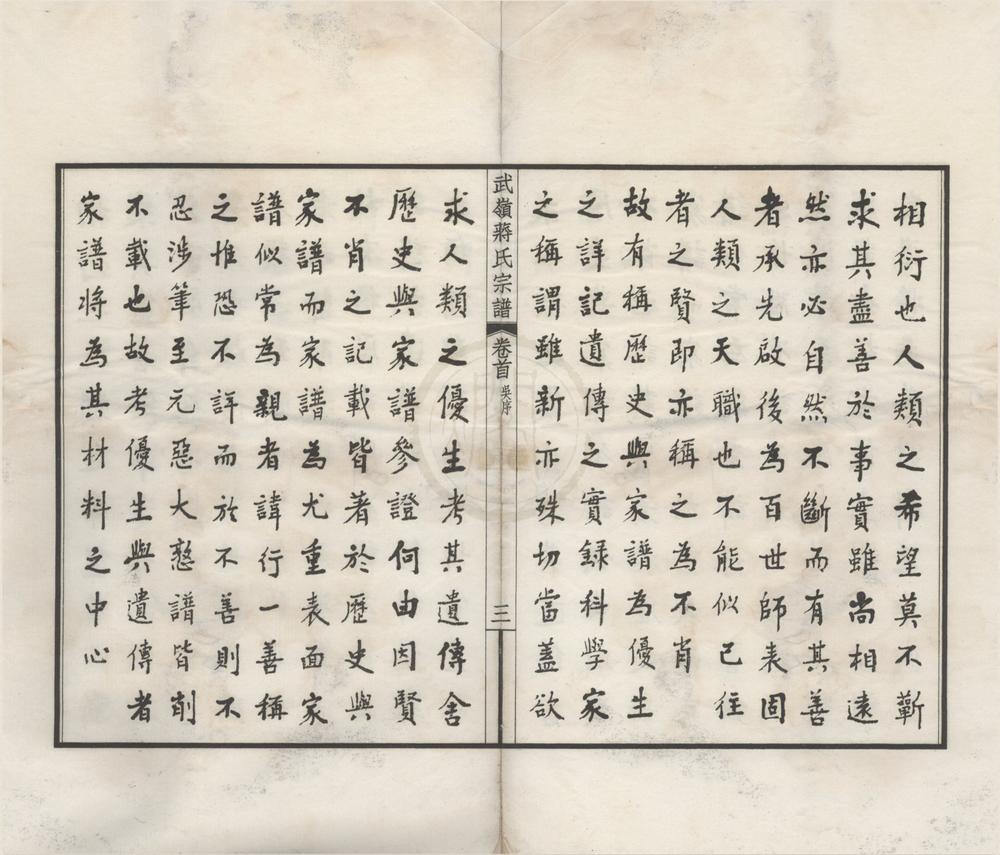 相衍也人類之希望莫不蘄
求其盡善於事實雖尚相遠
然亦必自然不斷而有其善
者承先啟後為百世師表固
人類之天職也不能似已往
者之賢即亦稱之為不肖
故有稱歷史與家譜為優生
之詳記遺傳之實録科學家
之稱謂雖新亦殊切當蓋欲
武嶺蔣氏宗譜
卷首
吳序
三
求人類之優生考其遺傳舍
歷史與家譜參證何由因賢
不肖之記載皆著於歷史與
家譜而家譜為尤重表面家
譜似常為親者諱行一善稱
之惟恐不詳而於不善則不
忍涉筆至元惡大憝譜皆削
不載也故考優生與遺傳者
家譜將為其材料之中心